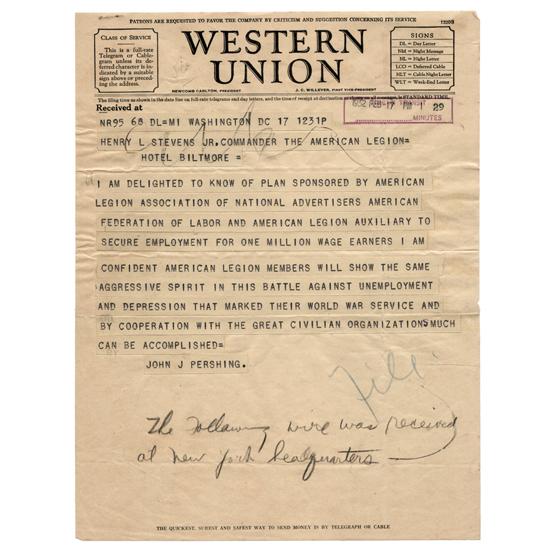 PATRONS ARE REQUESTED TO FAVOR THE COMPANY BY CRITICISM AND SUGGESTION CONCERNING ITS SERVICE
CLASS OF SERVICE
This is a full-rate
Telegram or Cable-
gram unless its de-
ferred character is in-
dicated by a suitable
sign above or preced-
ing the address.
WESTERN
UNION
NEWCOMB CARLTON, PRESIDENT
J. C. WILLEVER, FIRST VICE-PRESIDENT
SIGNS
DL = Day Letter
NM = Night Message
NL = Night Letter
LCO = Deferred Cable
NLT = Cable Night Letter
WLT = Week-End Letter
The filing time as shown in the date line on full-rate telegrams and day letters, and the time of receipt at destination as shown on all messages, is STANDARD TIME.
Received at
1932 FEB 17 PM 1 29
MINUTES
NR95 68 DL=MI WASHINGTON DC 17 1231P
HENRY L STEVENS JR.COMMANDER THE AMERICAN LEGION=
HOTEL BILTMORE =
I AM DELIGHTED TO KNOW OF PLAN SPONSORED BY AMERICAN
LEGION ASSOCIATION OF NATIONAL ADVERTISERS AMERICAN
FEDERATION OF LABOR AND AMERICAN LEGION AUXILIARY TO
SECURE EMPLOYMENT FOR ONE MILLION WAGE EARNERS I AM
CONFIDENT AMERICAN LEGION MEMBERS WILL SHOW THE SAME
AGGRESSIVE SPIRIT IN THIS BATTLE AGAINST UNEMPLOYMENT
AND DEPRESSION THAT MARKED THEIR WORLD WAR SERVICE AND
BY COOPERATION WITH THE GREAT CIVILIAN ORGANIZATIONS MUCH
CAN BE ACCOMPLISHED=
JOHN J PERSHING.
File
The following wire was received
at New York headquarters —
THE QUICKEST, SUREST AND SAFEST WAY TO SEND MONEY IS BY TELEGRAPH OR CABLE